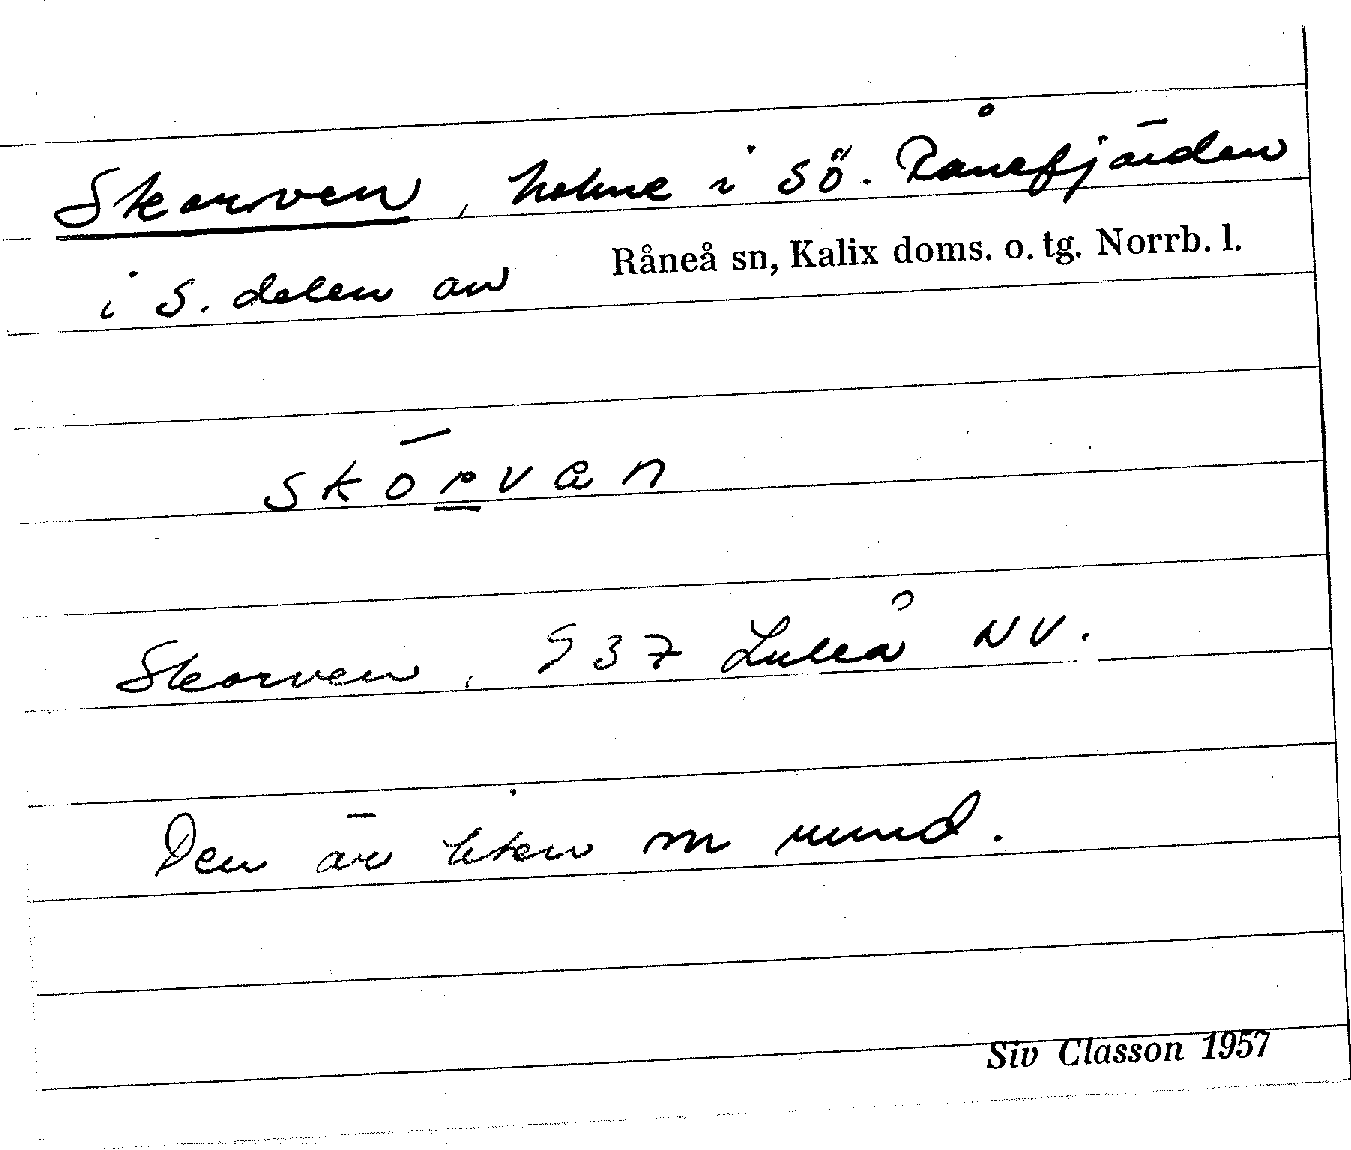 Skorven, holme i SÖ. Rånefjärden
i S. delen av Råneå sn, Kalix doms. o. tg. Norrb. l.
skōrvan
Skorven, 937 Luleå NV.
Den är liten m rund.
Siv Classon 1957